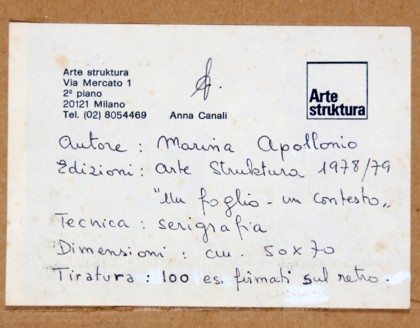 Arte struktura
Via Mercato 1
2º piano
20121 Milano
Tel. (02) 8054469
Anna Canali
Arte
struktura
Autore : Marina Apollonio
Edizioni : Arte Struktura 1978/79
"Un foglio - un contesto"
Tecnica : serigrafia
Dimensioni : cm. 50x70
Tiratura : 100 es. firmati sul retro.